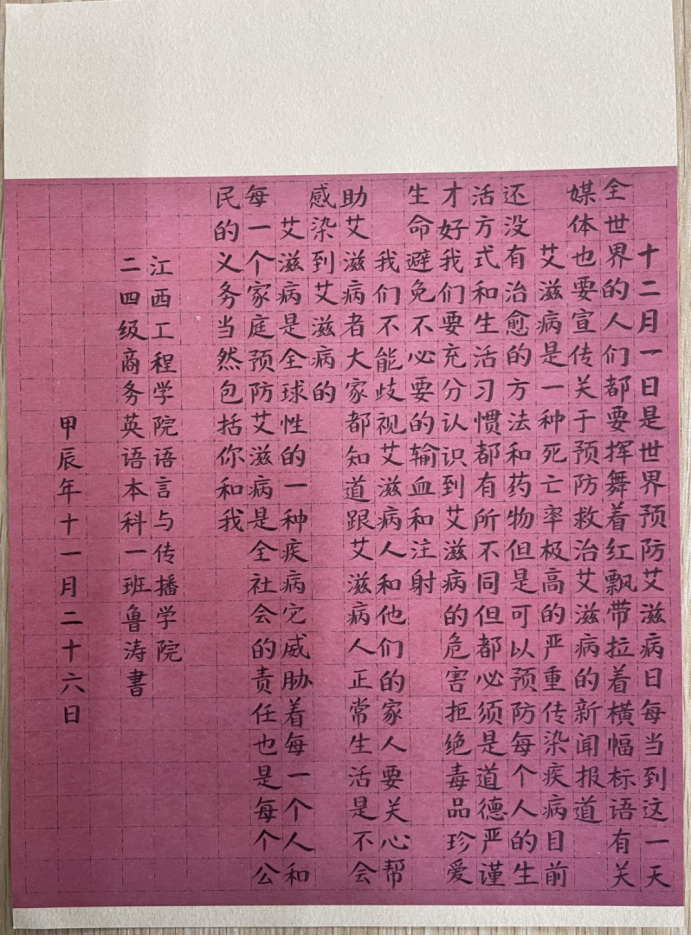 十二月一日是世界预防艾滋病日每当到这一天
全世界的人们都要挥舞着红飘带拉着横幅标语有关
媒体也要宣传关于预防救治艾滋病的新闻报道
艾滋病是一种死亡率极高的严重传染疾病目前
还没有治愈的方法和药物但是可以预防每个人的生
活方式和生活习惯都有所不同但都必须是道德严谨
才好我们要充分认识到艾滋病的危害拒绝毒品珍爱
生命避免不必要的输血和注射
我们不能歧视艾滋病人和他们的家人要关心帮
助艾滋病者大家都知道跟艾滋病人正常生活是不会
感染到艾滋病的
艾滋病是全球性的一种疾病它威胁着每一个人和
每一个家庭预防艾滋病是全社会的责任也是每个公
民的义务当然包括你和我
江西工程学院语言与传播学院
二四级商务英语本科一班鲁涛書
甲辰年十一月二十六日